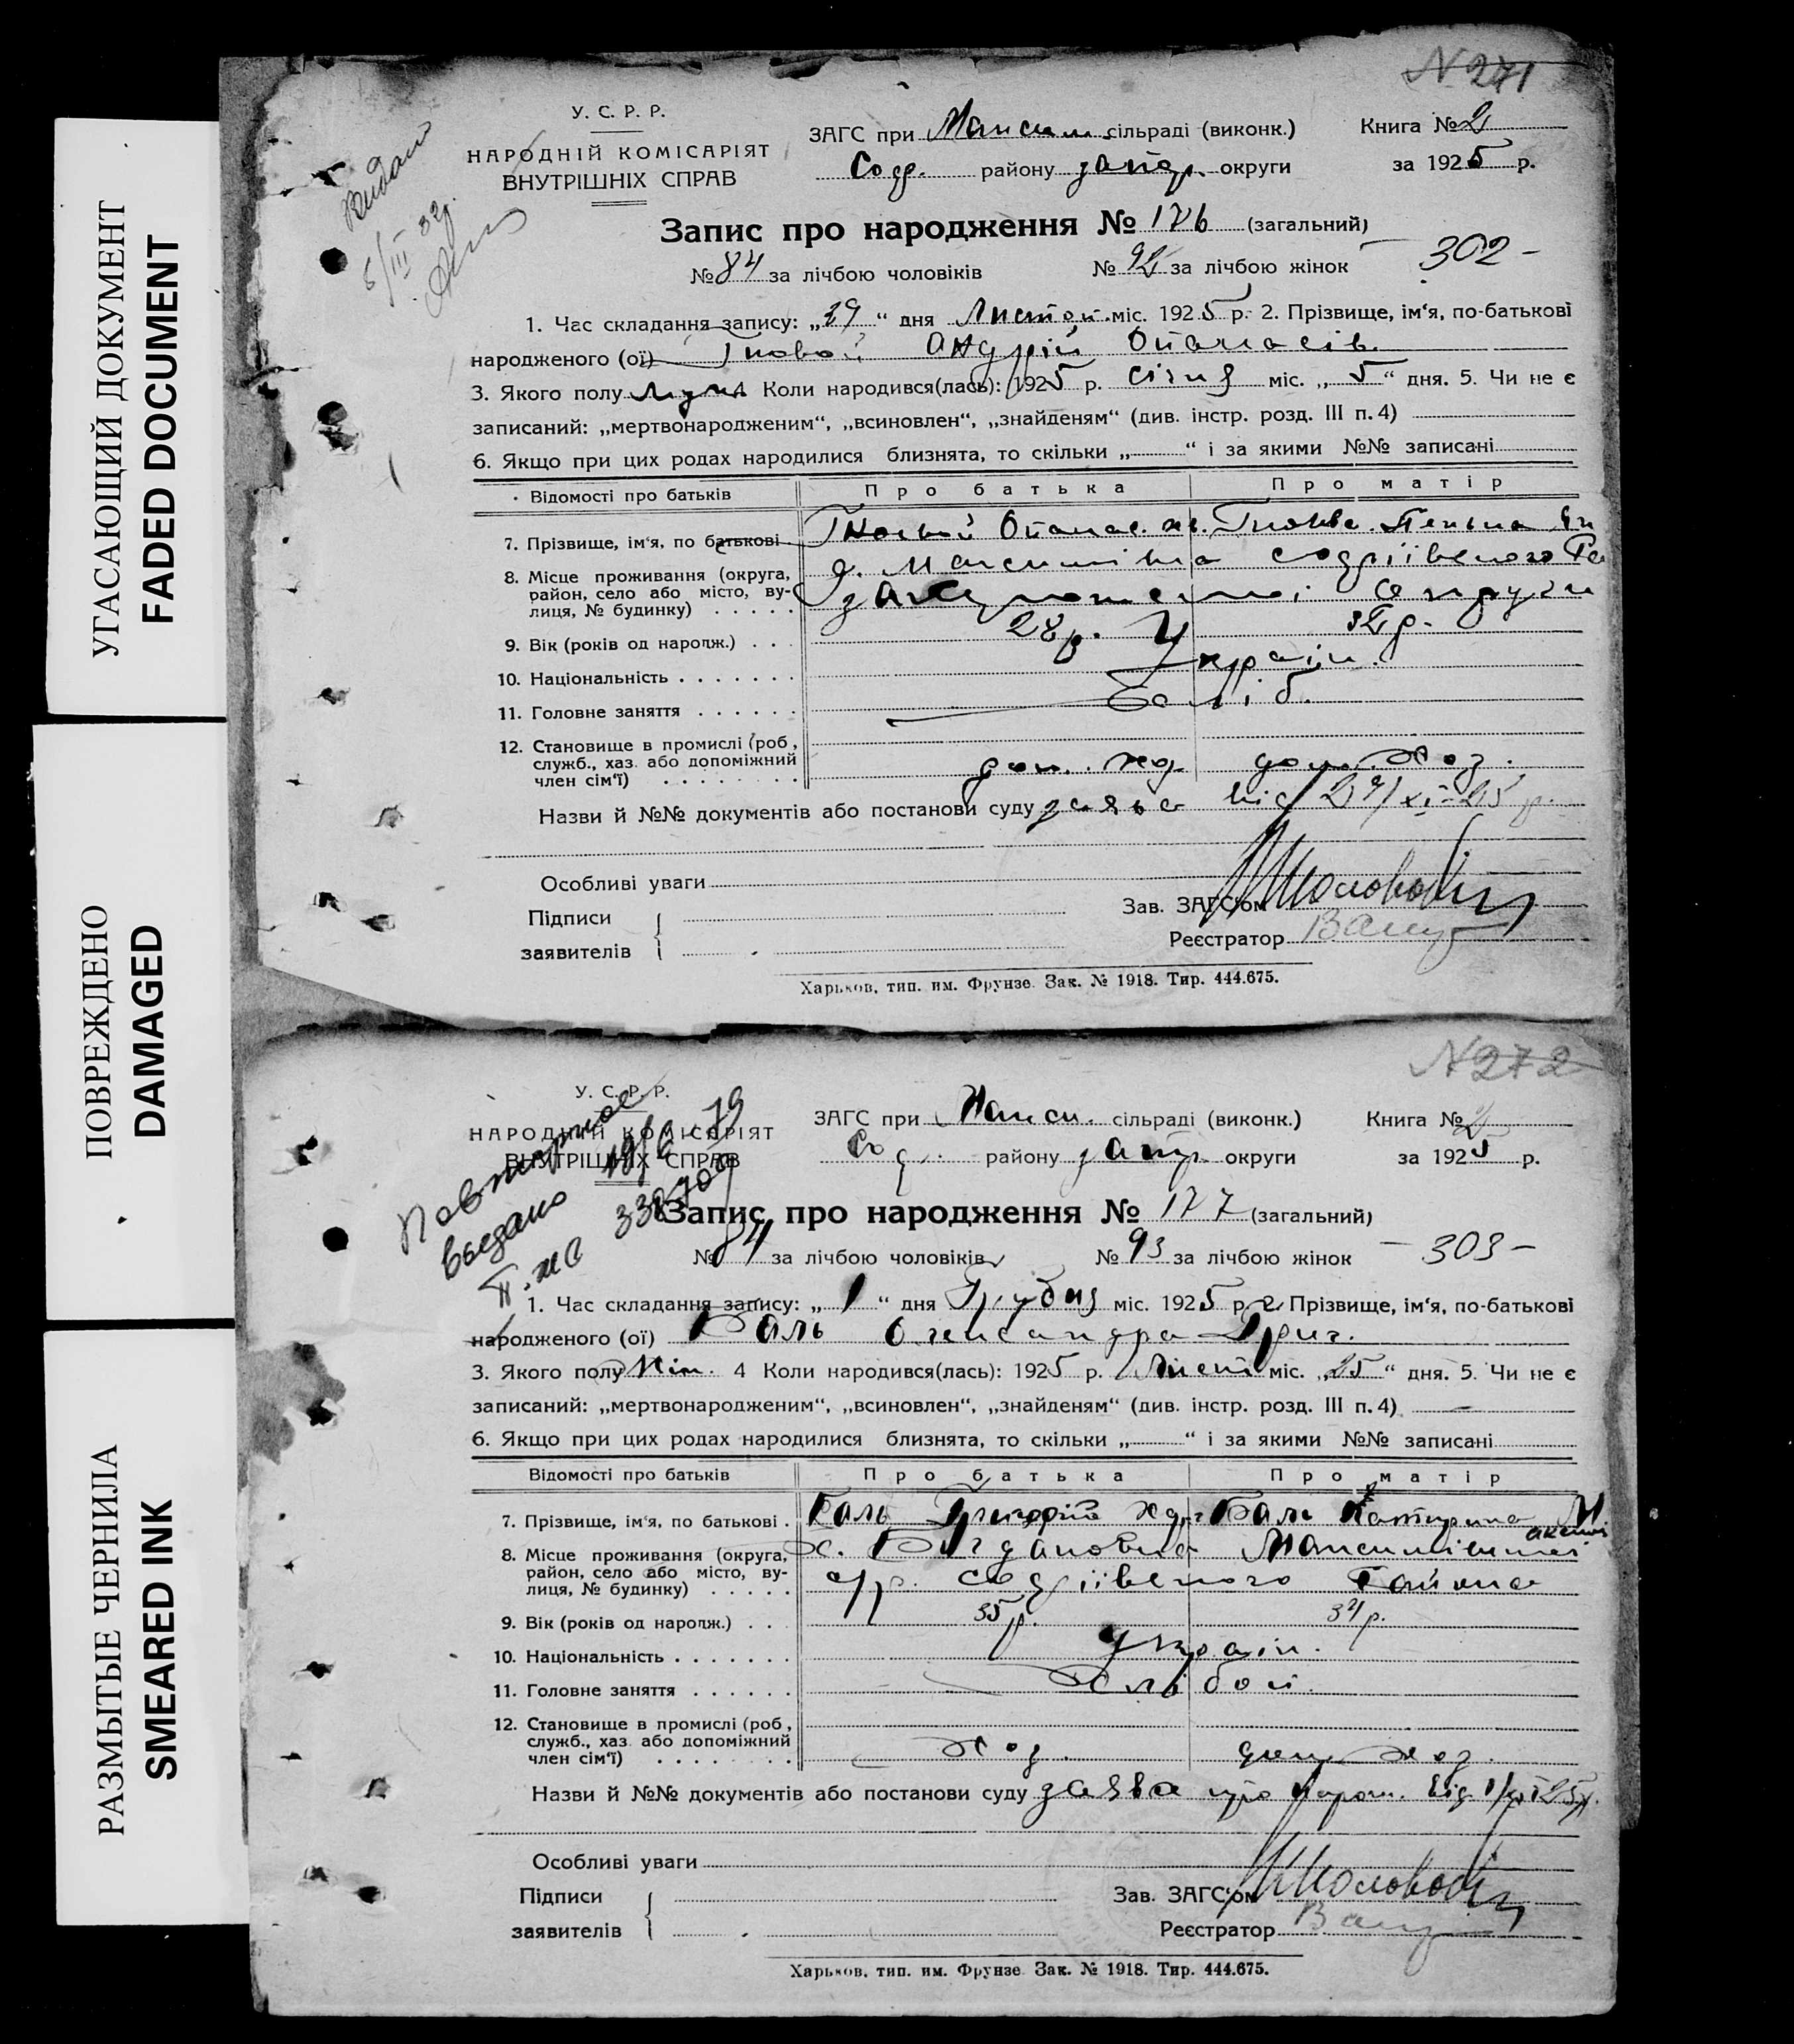 УГАСАЮЩИЙ ДОКУМЕНТ
FADED DOCUMENT
ПОВРЕЖДЕНО
DAMAGED
РАЗМЫТЫЕ ЧЕРНИЛА
SMEARED INK
N 271
У. С. Р. Р.
НАРОДНІЙ КОМІСАРІЯТ
ВНУТРІШНІХ СПРАВ
ЗАГС при Максим. сільраді (виконк.)
Соф. району запор. округи
Книга № 2
за 1925 р.
Видан
8/III 32р.
Запис про народження № 176 (загальний)
№ 84 за лічбою чоловіків № 92 за лічбою жінок – 302 –
1. Час складання запису: „29“ дня Листоп. міс. 1925 р. 2. Прізвище, ім‘я, по-батькові
народженого (ої) Гновой Андрій Опанасів.
3. Якого полу муж. 4 Коли народився(лась): 1925 р. січня міс. „5“ дня. 5. Чи не є
записаний: „мертвонародженим“, „всиновлен“, „знайденям“ (див. інстр. розд. III п. 4)
6. Якщо при цих родах народилися близнята, то скільки „ “ і за якими №№ записані
Відомості про батьків Про батька Про матір
7. Прізвище, ім‘я, по батькові Гновой Опанас
8. Місце проживання (округа, район, село або місто, вулиця, № будинку) Софіївского
округи
9. Вік (років од народж.) 28 р. 32 р.
10. Національність Україн.
11. Головне заняття Хліб.
12. Становище в промислі (роб., служб., хаз. або допоміжний член сім‘ї) доп. хоз.
Назви й №№ документів або постанови суду заява від 29/XI-25 р.
Особливі уваги
Підписи
заявителів
Зав. ЗАГС‘ом
Реєстратор
Харьков, тип. им. Фрунзе. Зак. № 1918. Тир. 444.675.
N 272
У. С. Р. Р.
НАРОДНІЙ КОМІСАРІЯТ
ВНУТРІШНІХ СПРАВ
ЗАГС при Макси. сільраді (виконк.)
Соф. району запор. округи
Книга № 2
за 1925 р.
Повторное
выдано 19/6 79
Запис про народження № 177 (загальний)
№ 84 за лічбою чоловіків № 93 за лічбою жінок – 303 –
1. Час складання запису: „1“ дня Грудня міс. 1925 р. 2. Прізвище, ім‘я, по-батькові
народженого (ої) Баль Олександра Григ.
3. Якого полу жін. 4 Коли народився(лась): 1925 р. Лист. міс. „25“ дня. 5. Чи не є
записаний: „мертвонародженим“, „всиновлен“, „знайденям“ (див. інстр. розд. III п. 4) –
6. Якщо при цих родах народилися близнята, то скільки „ “ і за якими №№ записані
Відомості про батьків Про батька Про матір
7. Прізвище, ім‘я, по батькові Баль Григорій Баль Катирина
8. Місце проживання (округа, район, село або місто, вулиця, № будинку) х. Богдановка Максимівської
с/р. Софіївского Району
9. Вік (років од народж.) 35 р. 34 р.
10. Національність Україн.
11. Головне заняття Хлібоп.
12. Становище в промислі (роб., служб., хаз. або допоміжний член сім‘ї) Хоз. доп. Хоз.
Назви й №№ документів або постанови суду заява про народж. від
Особливі уваги
Підписи
заявителів
Зав. ЗАГС‘ом
Реєстратор
Харьков, тип. им. Фрунзе. Зак. № 1918. Тир. 444.675.